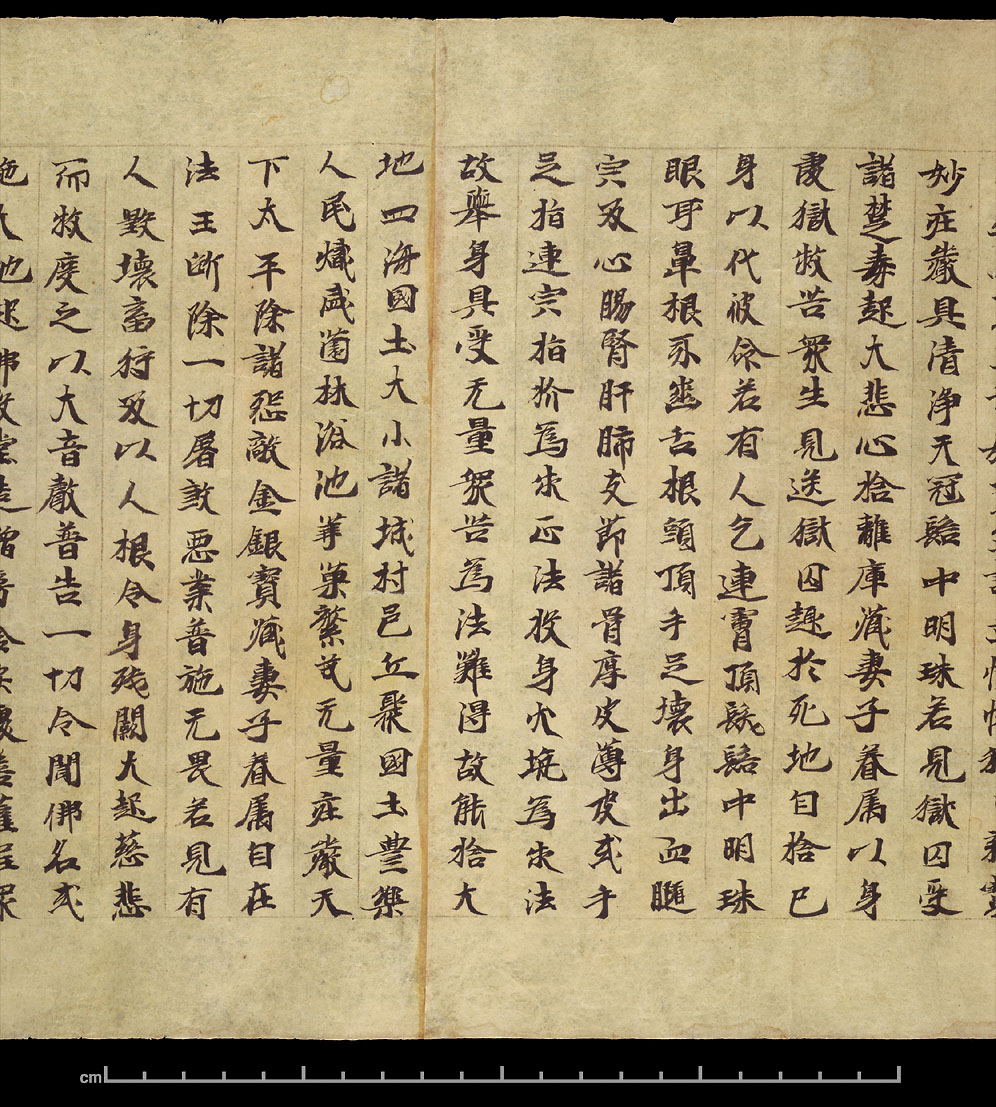 妙疘嚴具清浄天冠髻中明珠若見獄囚受
諸楚毒起大悲心捨離庫蔵妻子眷属以身
處獄救苦衆生見送獄囚趣於死地自捨己
身以代彼命若有人乞連膚頂髮髻中明珠
眼耳鼻根牙齒舌根頭頂手足壞身出血髓
宍及心腸腎肝肺支節諸骨厚皮薄皮或手
足指連宍指扴為求正法投身火坑為求法
故舉身具受无量衆苦為法難得故能捨大
地四海國土大小諸城村邑丘聚國土豊樂
人民熾盛薗林浴池華菓繁茂无量疘嚴天
下太平除諸怨敵金銀寶蔵妻子眷属自在
法王斷除一切屠煞惡業普施无畏若見有
人毀壞畜狩及以人根令身殘闕大起慈悲
而救度之以大音聲普告一切令聞佛名或